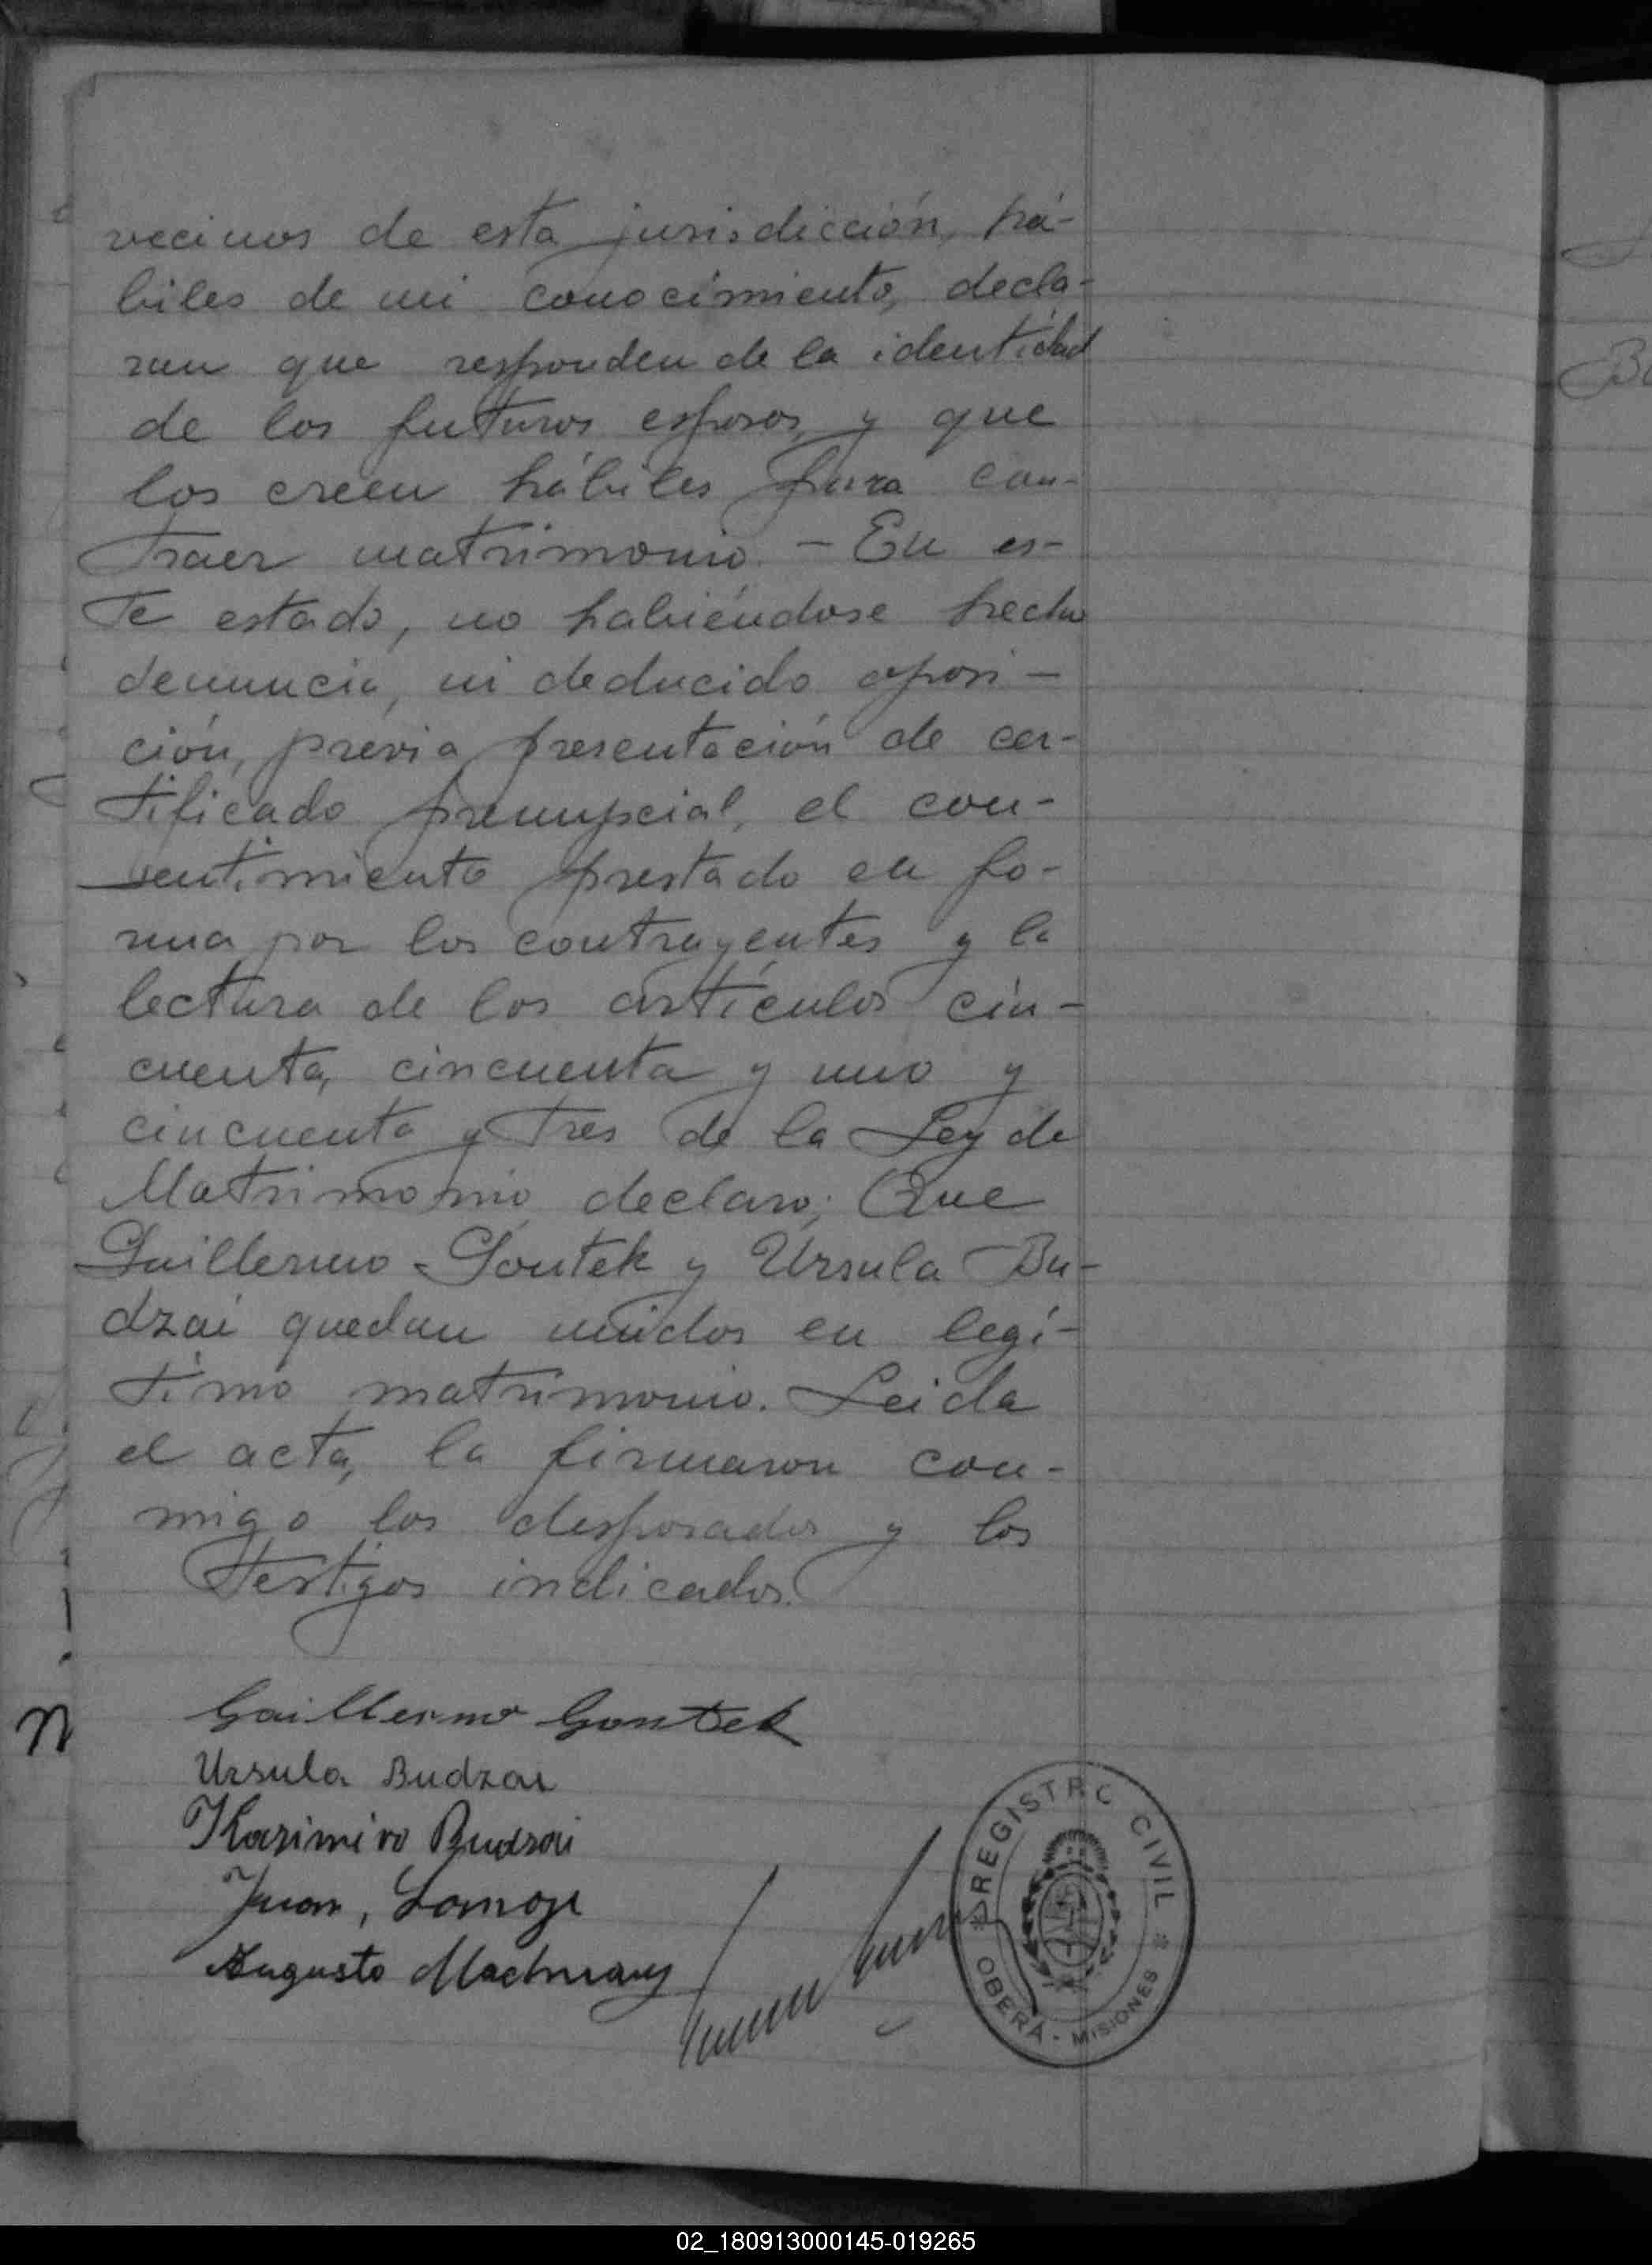 vecinos de esta jurisdicción, há-
biles de mi conocimiento, decla-
ran que responden de la identidad
de los futuros esposos, y que
los creen hábiles para con-
traer matrimonio. - En es-
te estado, no habiéndose hecho
denuncia, ni deducido oposi-
ción, previa presentación de cer-
tificado prenupcial, el con-
sentimiento prestado en fo-
rma por los contrayentes y la
lectura de los artículos cin-
cuenta, cincuenta y uno y
cincuenta y tres de la Ley de
Matrimonio declaro; Que
Guillermo Gontek y Ursula Bu-
dzai quedan unidos en legí-
timo matrimonio. Leida
el acta, la firmaron con-
migo los desposados y los
testigos indicados.
Guillermo Gontek
Ursula Budzai
Kazimiro Budzai
Juan,
Augusto
REGISTRO CIVIL
OBERÁ - MISIONES
02_180913000145-019265